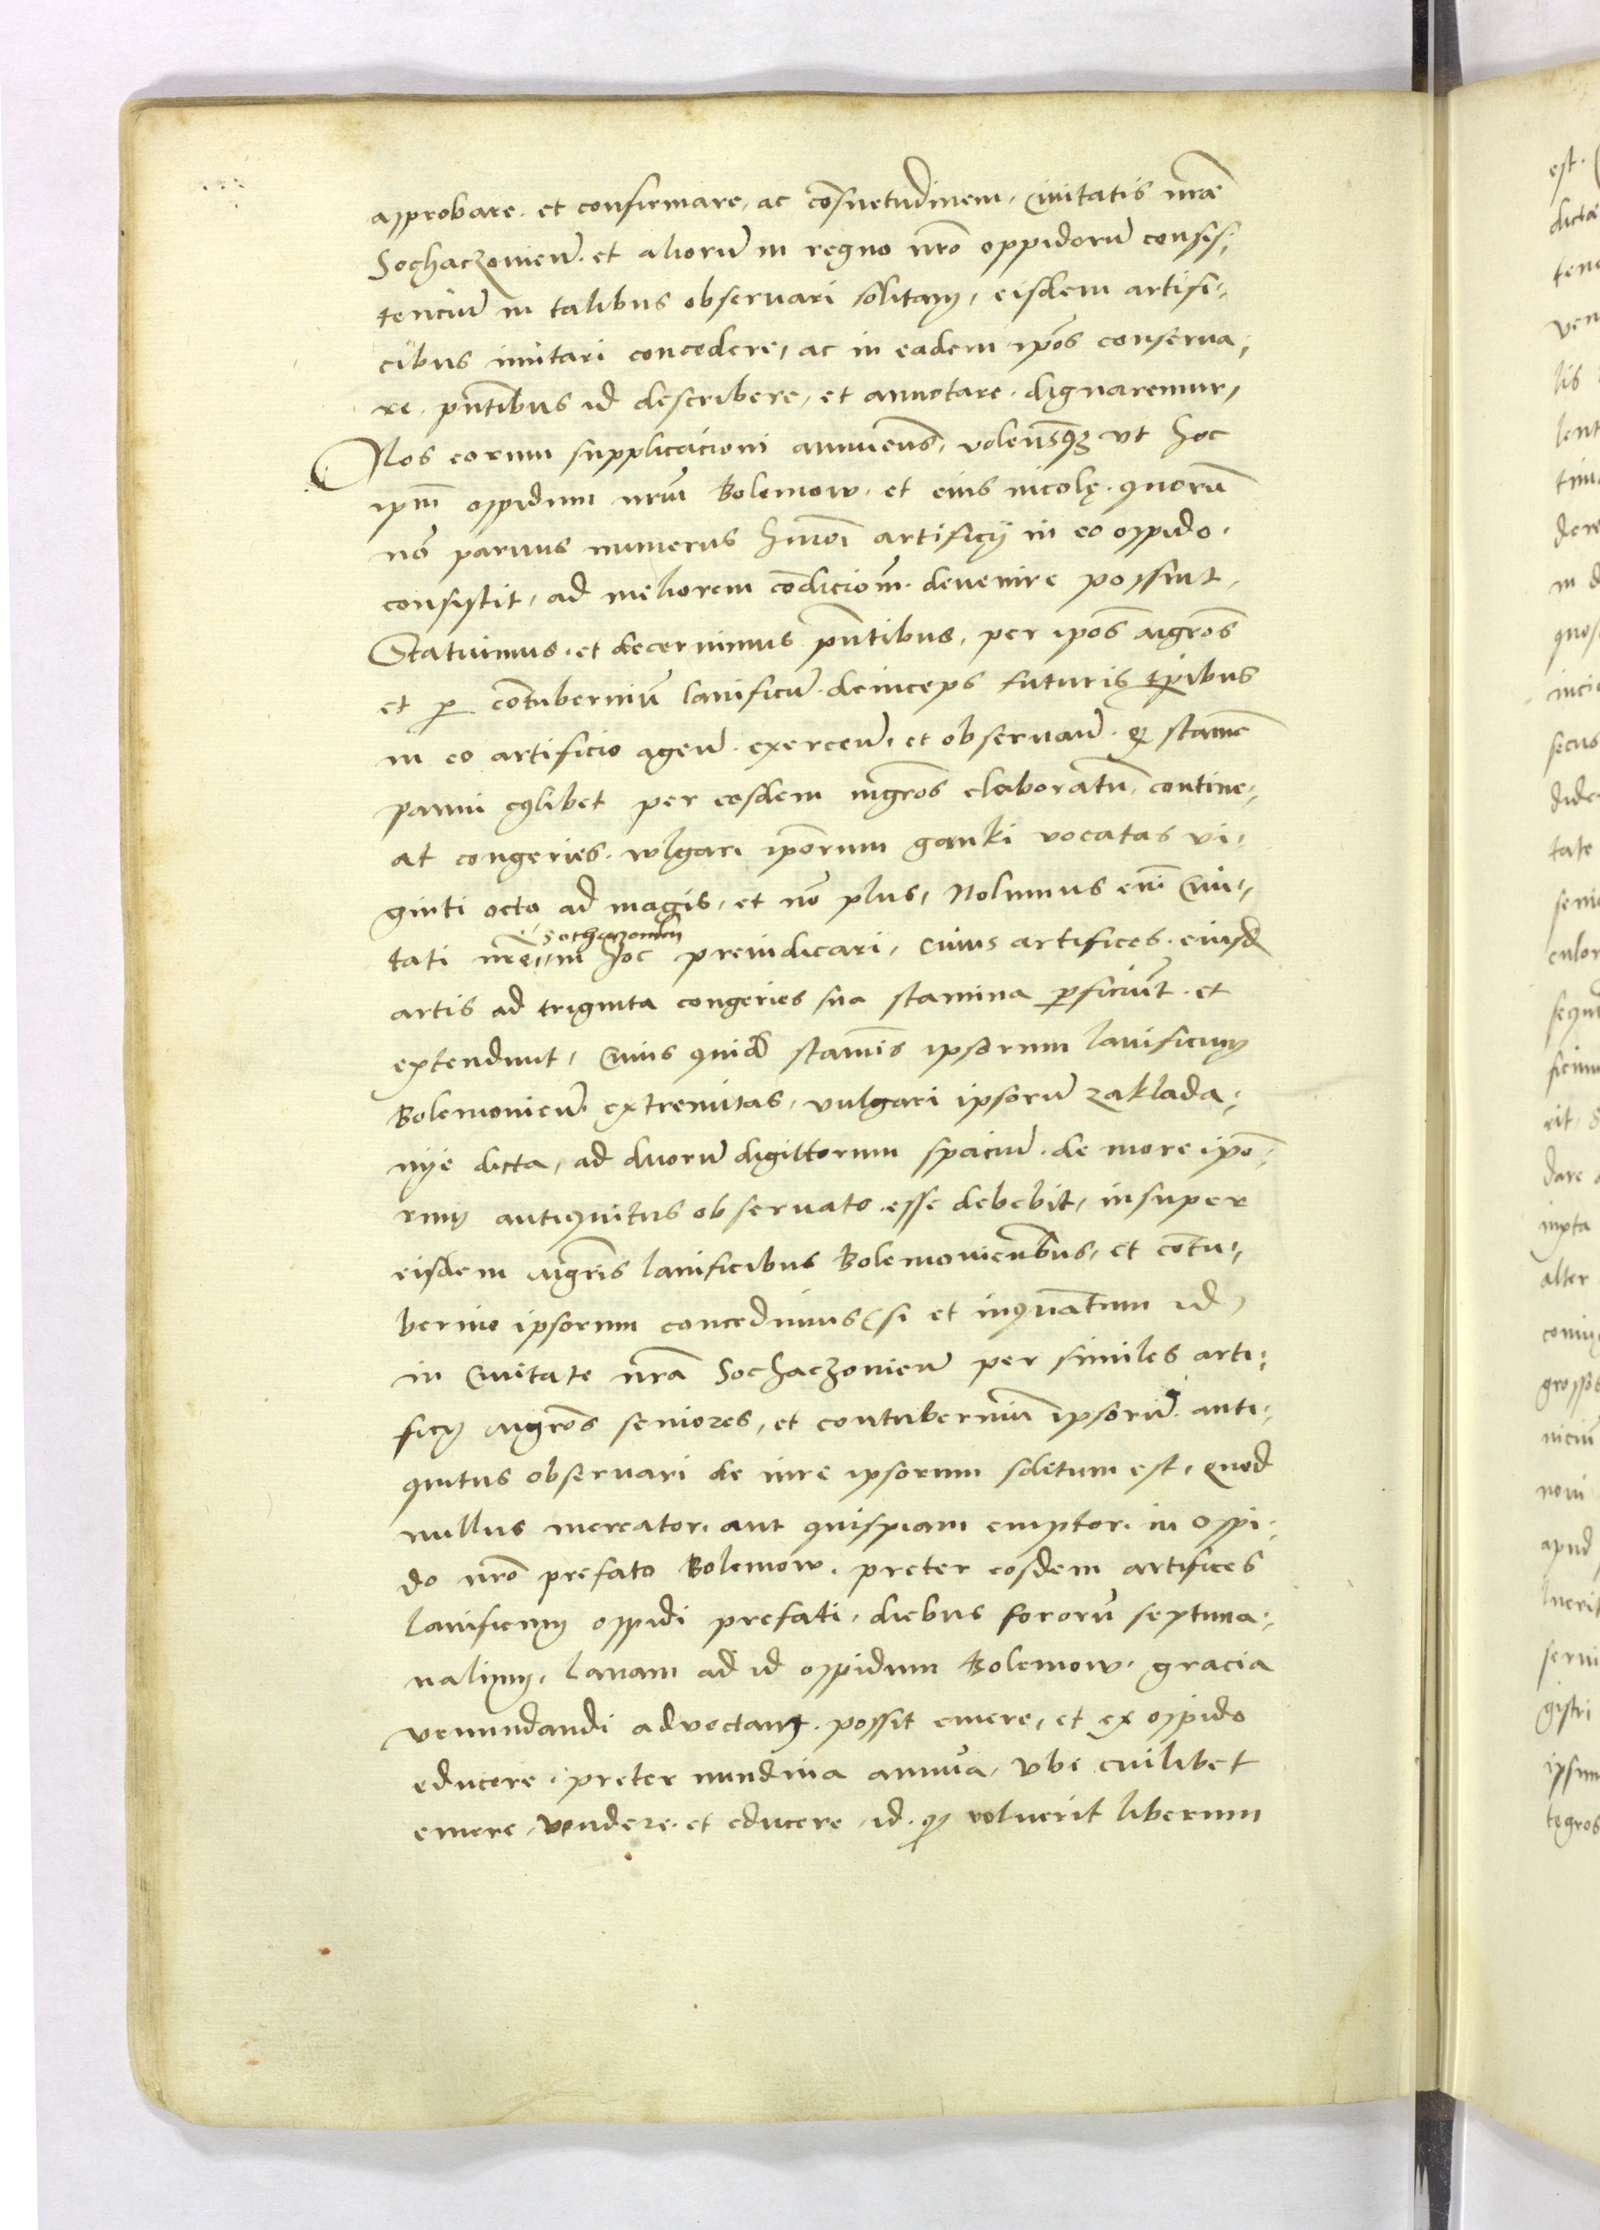 approbare. et confirmare, ac cõsuetudinem, Ciuitatis nr̃ae
Sochaczouien̄. et aliorū in regno nrõ oppidorū consis,
tenciū in talibus obseruari solitam, eisdem artifi,
cibus imitari concedere, ac in eadem ip̃os conserua,
re. pñtibus id describere, et annotare. dignaremur,
Nos eorum supplicacioni annuen̄s, volen̄sq3 vt hoc
ip̄m oppidum nrūm Bolemow. et eius incolę. quorū
nõ paruus numerus hm̄oi artificij in eo oppido.
consistit, ad meliorem cõdicioñm. deuenire possint,
Statuimus. et decernimus pñtibus, per ip̃os mgros
et p cõtuberniū lanificū. deinceps futuris tp̃ibus
in eo artificio agen̄. exercen̄, et obseruan̄. q3 stamē
panni cuilibet per eosdem mgros elaboratū, contine,
at congeries. wlgari ip̃orum ganki vocatas vi,
ginti octo ad magis, et nõ plus, Nolumus em̄ Ciui,
tati nrē, Sochaczouien̄ in hoc preiudicari, cuius artifices. eiusd̃
artis ad triginta congeries sua stamina p̱ficiūt. et
extendunt, Cuius quid̃ stam̄is ipsorum lanificum
Bolemouien̄. extremitas, vulgari ipsorū zaklada,
nye dicta, ad duorū digittorum spaciū. de more ip̃o,
rum antiquitus obseruato. esse debebit, insuper
eisdem mgr̄is lanificibus Bolemouien̄bus, et cõtu,
bernio ipsorum concedimus (si et inquantum id)
in Ciuitate nrã Sochaczouien̄ per similes arti,
ficij mgros seniores, et contuberniū ipsorū. anti,
quitus obseruari de iure ipsorum solitum est, quod
nullus mercator. aut quispiam emptor. in Oppi,
do nrõ prefato Bolemow. preter eosdem artifices
lanificum oppidi prefati, diebus fororū septima,
nalium, Lanam ad id oppidum Bolemow. gracia
venundandi aduectam. possit emere, et ex oppido
educere. preter nundina annua, Vbi cuilibet
emere, vendere. et educere, id. q3 voluerit liberum